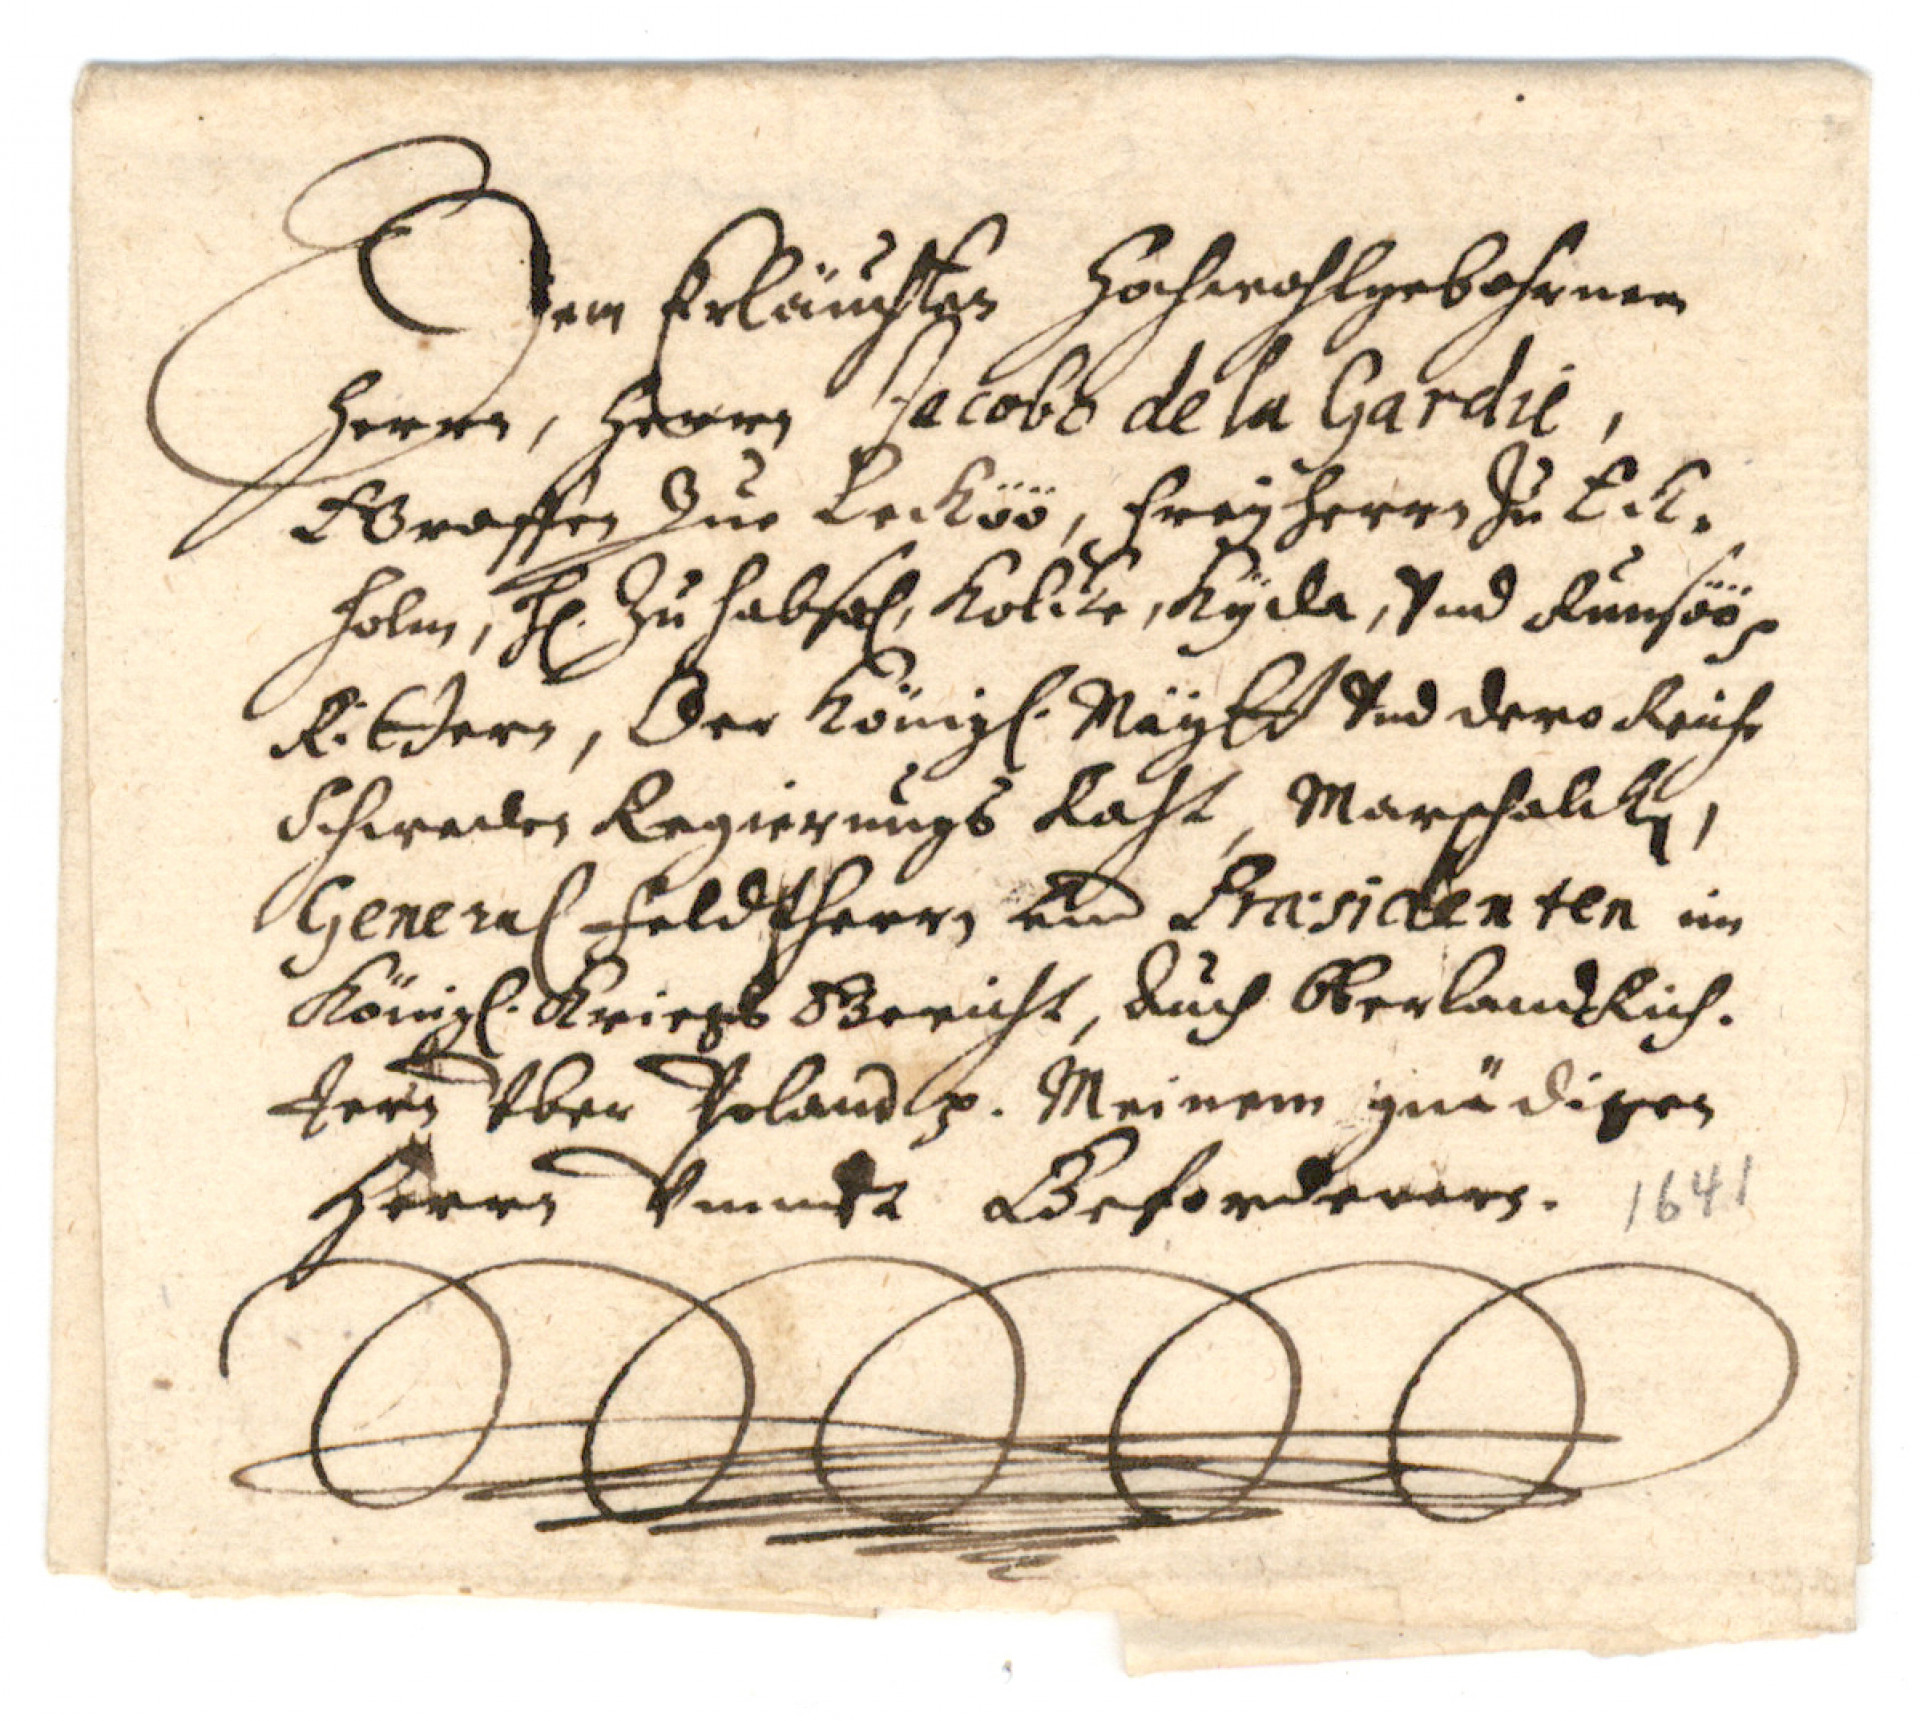 Dem Erläuchten Hochwohlgebohrnen
Herrn, Herrn Jacobo de la Gardie,
Graffen Zue Leckóó, Freyherrn Zu Eck.
holm, H. Zu Habsal, Kolcke, Kÿda, Vnd Runsöö,
Rittern, Der Königl. Maÿtt Vnd dero Reiche
Schweden Regierungs Raht, Marschalcken,
General Feldtherrn Und Præsidenten im
Königl. Kriegs Gericht, Auch Oberlandt Rich.
tern Vber Poland p. Meinem gnädigen
Herrn Vnndt Beforderern.
1641